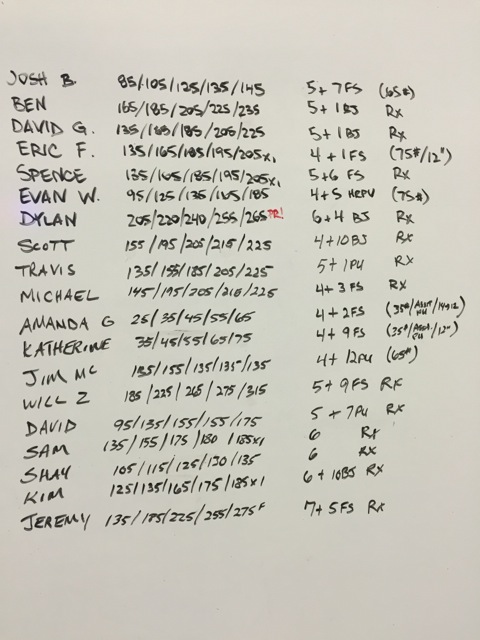 JOSH B. 85/105/125/135/145 5+7FS (65#)
BEN 165/185/205/225/235 5+1BJ Rx
DAVID G. 135/165/185/205/225 5+1BJ Rx
ERIC F. 135/165/185/195/205x1 4+1FS (75#/12")
SPENCE 135/165/185/195/205x1 5+6 FS Rx
EVAN W. 95/125/135/165/185 4+5 HRPU (75#)
DYLAN 205/220/240/255/265 PR! 6+4 BJ Rx
SCOTT 155/195/205/215/225 4+10BJ Rx
TRAVIS 135/155/185/205/225 5+1PU Rx
MICHAEL 145/195/205/215/225 4+3 FS Rx
AMANDA G 25/35/45/55/65 4+2FS (35#/ASSIST PU/
KATHERINE 35/45/55/65/75 4+9FS (35#/ASST. PU/12")
JIM MC 135/155/135/135/135 4+12PU (65#)
WILL Z 185/225/265/275/315 5+9FS Rx
DAVID 95/135/155/155/175 5+7PU Rx
SAM 135/155/175/180/185x1 6 Rx
SHAY 105/115/125/130/135 6 Rx
KIM 125/135/165/175/185x1 6+10BJ Rx
JEREMY 135/185/225/255/275F 7+5FS Rx